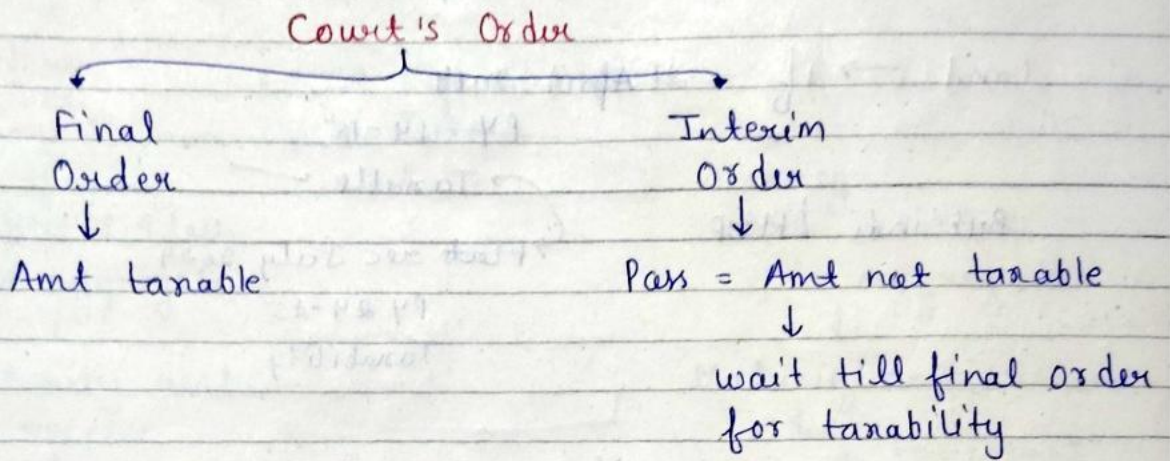 Court's Order
Final
Order
↓
Amt taxable
Interim
Order
↓
Pass = Amt not taxable
↓
wait till final order
for taxability